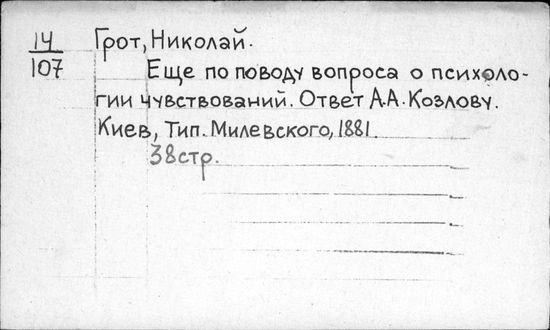 14 Грот, Николай.
107 Еще по поводу вопроса о психоло-
гии чувствований. Ответ А.А. Козлову.
Киев, Тип. Милевского, 1881.
38стр.